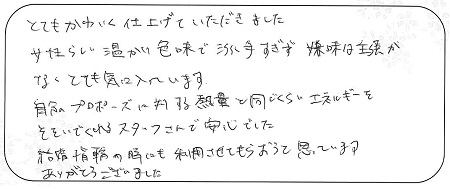 とてもかわいく仕上げていただきました
女性らしい温かい色味で派手すぎず 嫌味な主張が
なくとても気に入っています
自分のプロポーズに対する熱量と同じくらいエネルギーを
そそいでくれるスタッフさんで安心でした
結婚指輪の時にも利用させてもらおうと思っています
ありがとうございました